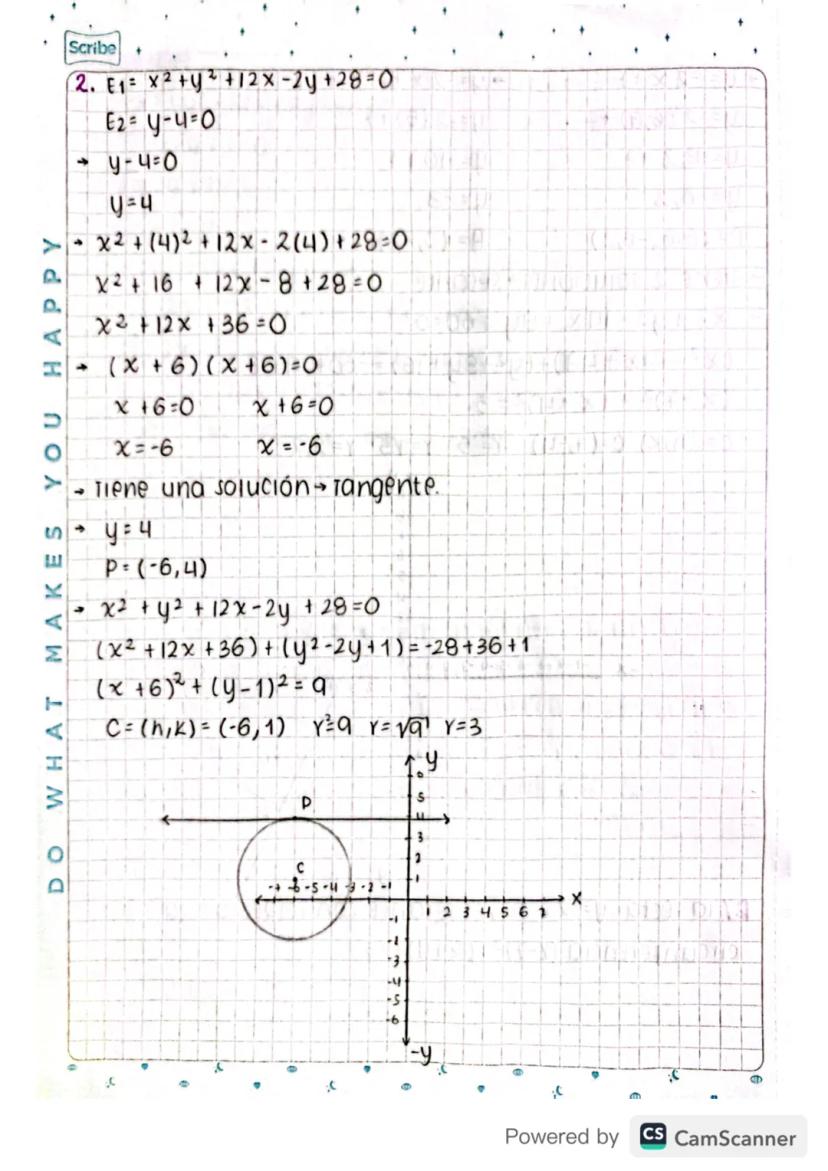 Scribe
2. E1= x² + y² + 12x - 2y + 28 = 0
E2= y - 4 = 0
→ y - 4 = 0
y = 4
→ x² + (4)² + 12x - 2(4) + 28 = 0
x² + 16 + 12x - 8 + 28 = 0
x² + 12x + 36 = 0
→ (x + 6)(x + 6) = 0
x + 6 = 0 x + 6 = 0
x = -6 x = -6
→ Tiene una solución → Tangente.
→ y = 4
P = (-6, 4)
→ x² + y² + 12x - 2y + 28 = 0
(x² + 12x + 36) + (y² - 2y + 1) = -28 + 36 + 1
(x + 6)² + (y - 1)² = 9
C = (h, k) = (-6, 1) r² = 9 r = √9 r = 3
y
6
P
5
4
3
2
C
1
-7 -6 -5 -4 -3 -2 -1
x
1 2 3 4 5 6 7
-1
-2
-3
-4
-5
-6
-y
DO WHAT MAKES YOU HAPPY
Powered by CS CamScanner